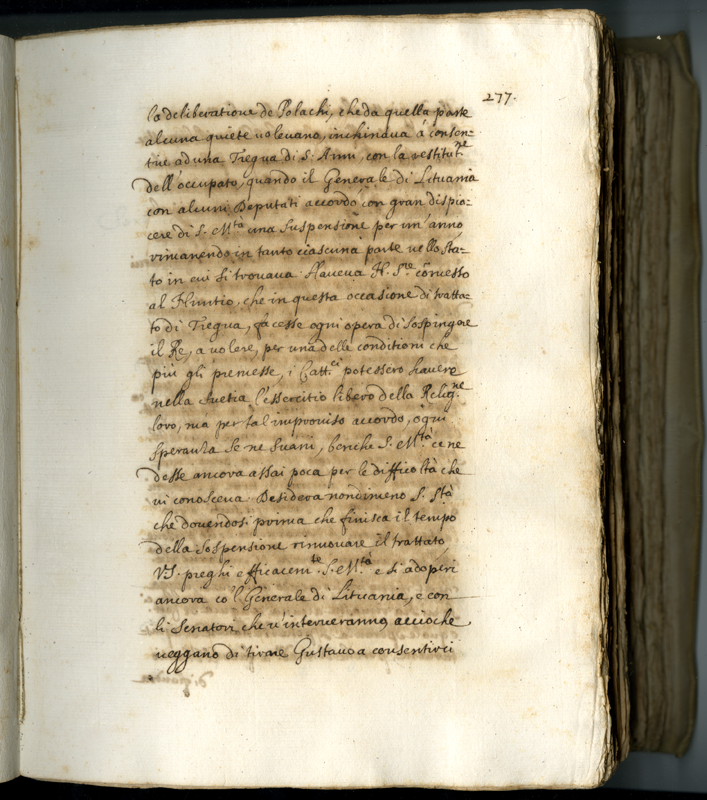 277.
la deliberatione de Polachi, che da quella parte
alcuna quiete uoleuano, inchinaua à consen=
tire ad una Tregua di S. Anni, con la restitut.ne
dell'occupato, quando il Generale di Lituania
con alcuni Deputati accordò con gran dispia=
cere di S. M.tà una suspensione per un'anno,
rimanendo in tanto ciascuna parte nello sta=
to in cui si trouaua. Haueua N. S.re comesso
al Nuntio, che in questa occasione di tratta=
to di Tregua, facesse ogni opera di sospingere
il Re, a uolere, per una delle conditioni che
più gli premesse, i Catt.ci potessero hauere
nella Suetia l'essercitio libero della Relig.ne
loro, mà per tal improuiso accordo, ogni
speranza se ne suanì, benche S. M.tà ce ne
desse ancora assai poca per le difficoltà che
ui conosceua. Desidera nondimeno S. Stà
che douendosi prima che finisca il tempo
della sospensione rinnouare il trattato
VS. preghi efficacem.te S. M.tà e si adoperi
ancora co'l Generale di Lituania, e con
li Senatori che u'interueranno, accioche
ueggano di tirare Gustauo a consentirci